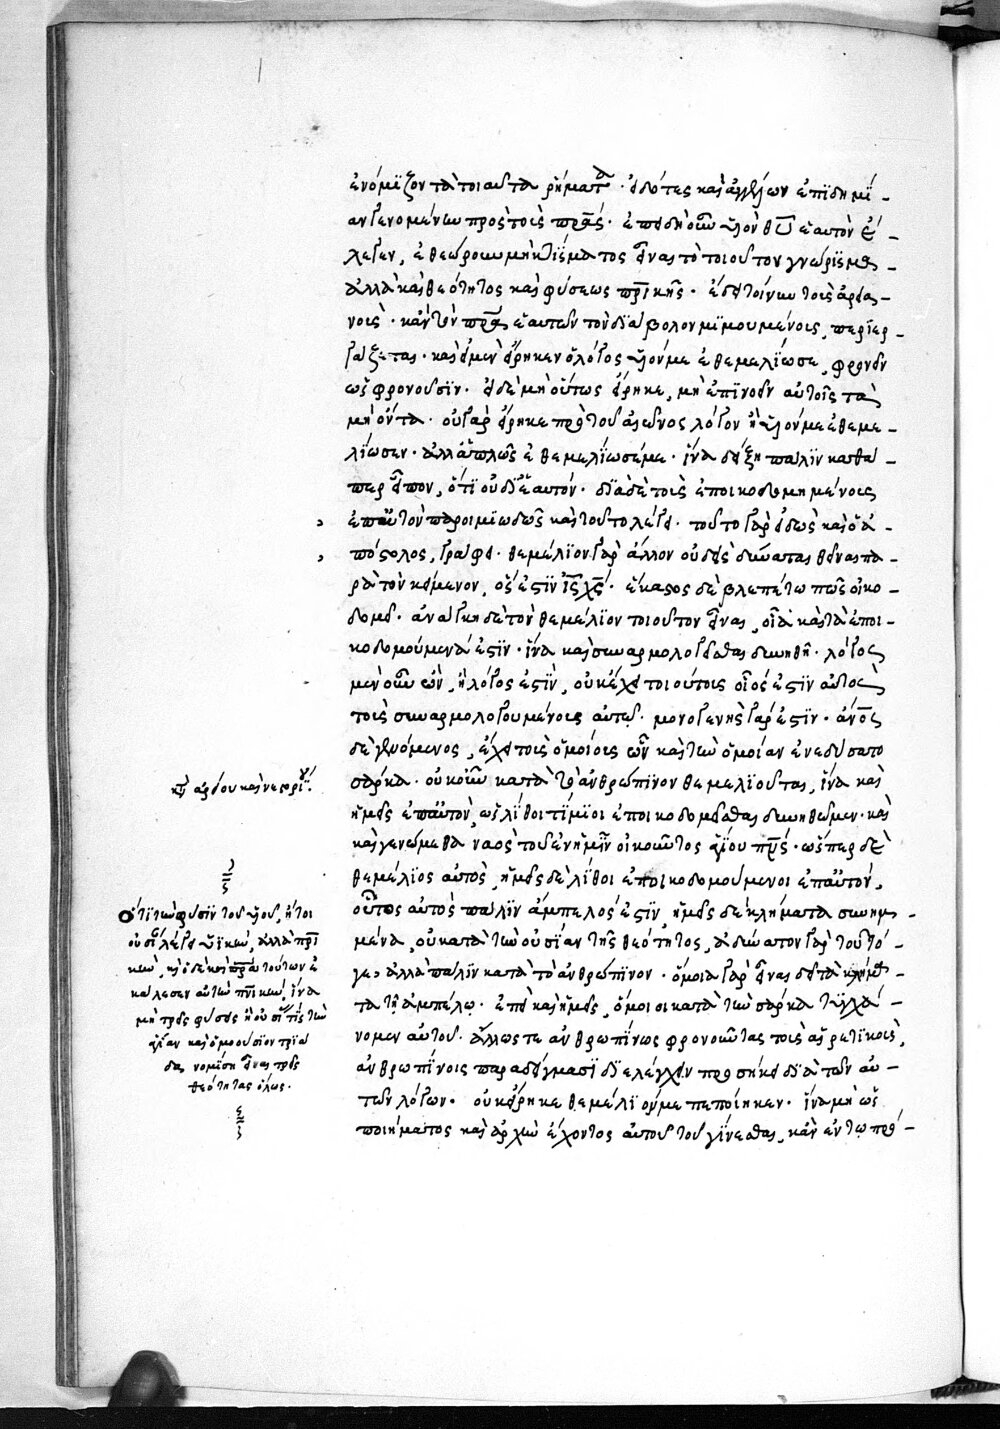 ἐνόμιζον τὰ τοιαῦτα ῥήματα · εἰδότες καὶ ἀγγέλων ἐπιδημί -
αν γενομένων πρὸς τοὺς πρας · ἐπειδὴ οὖν υἱὸν θυ ἑαυτὸν ἔ -
λεγεν, ἐθεώρουν μὴ κτίσματος εἶναι τὸ τοιοῦτον γνώρισμα -
ἀλλὰ καὶ θεότητος καὶ φύσεως πρικῆς · εἰ δὲ τοίνυν τοῖς ἀρεια -
νοῖς · κἂν τὸν πρα ἑαυτῶν τὸν διάβολον μιμουμένοις, περιερ -
γάζεται · καὶ εἰ μὲν εἴρηκεν ὁ λόγος υἱόν με ἐθεμελίωσε, φρονεῖν
ὡς φρονοῦσιν · εἰ δὲ μὴ οὕτως εἴρηκε, μὴ ἐπινοεῖν αὐτοῖς τὰ
μὴ ὄντα · οὐ γὰρ εἴρηκε πρὸ τοῦ αἰῶνος λόγον ἢ υἱόν με ἐθεμε -
λίωσεν · ἀλλ' ἁπλῶς ἐθεμελίωσέ με · ἵνα δείξῃ πάλιν καθὰ -
περ εἶπον, ὅτι οὐ δι' ἑαυτόν · διὰ δὲ τοὺς ἐποικοδομημένους
ἐπ' αὐτὸν παροιμιωδῶς καὶ τοῦτο λέγει · τοῦτο γὰρ εἰδὼς καὶ ὁ ἀ -
πόστολος, γράφει · θεμέλιον γὰρ ἄλλον οὐδεὶς δύναται θεῖναι πα
ρὰ τὸν κείμενον, ὅς ἐστιν ις χς · ἕκαστος δὲ βλεπέτω πῶς οἰκο -
δομεῖ · ἀνάγκη δὲ τὸν θεμέλιον τοιοῦτον εἶναι, οἷα καὶ τὰ ἐποι -
κοδομούμενά ἐστιν · ἵνα καὶ συναρμολογεῖσθαι δυνηθῇ · λόγος
μὲν οὖν ὤν, ᾗ λόγος ἐστὶν, οὐκ ἔχει τοιούτους οἷός ἐστιν αὐτὸς
τοὺς συναρμολογουμένους αὐτῷ · μονογενὴς γάρ ἐστιν · ἄνος
δὲ γενόμενος, ἔχει τοὺς ὁμοίους ὧν καὶ τὴν ὁμοίαν ἐνεδύσατο
σάρκα · οὐκοῦν κατὰ τὸ ἀνθρώπινον θεμελιοῦται, ἵνα καὶ
ἡμεῖς ἐπ' αὐτὸν ὡς λίθοι τίμιοι ἐποικοδομεῖσθαι δυνηθῶμεν · καὶ
καὶ γενώμεθα ναὸς τοῦ ἐν ἡμῖν οἰκοῦντος ἁγίου πνς · ὥσπερ δὲ
θεμέλιος αὐτὸς, ἡμεῖς δὲ λίθοι ἐποικοδομούμενοι ἐπ' αὐτὸν,
οὕτως αὐτὸς πάλιν ἄμπελός ἐστιν, ἡμεῖς δὲ κλήματα συνημ -
μένα, οὐ κατὰ τὴν οὐσίαν τῆς θεότητος, ἀδύνατον γὰρ τοῦτό -
γε, ἀλλὰ πάλιν κατὰ τὸ ἀνθρώπινον · ὅμοια γὰρ εἶναι δεῖ τὰ κλήμα -
τα τῇ ἀμπέλῳ · ἐπεὶ καὶ ἡμεῖς, ὅμοιοι κατὰ τὴν σάρκα τυγχά -
νομεν αὐτοῦ · ἄλλως τε ἀνθρωπίνως φρονοῦντας τοὺς αἱρετικοὺς,
ἀνθρωπίνοις παραδείγμασι διελέγχειν προσήκει διὰ τῶν αὐ -
τῶν λόγων · οὐκ εἴρηκε θεμέλιόν με πεποίηκεν · ἵνα μὴ ὡς
ποιήματος καὶ ἀρχὴν ἔχοντος αὐτοῦ τοῦ γίνεσθαι, κἂν ἐν τῷ πρό -
κτ ἀρείου καὶ νεστορι.
ὅτι τὴν φύσιν τοῦ υἱοῦ, ἤτοι
οὐσίαν λέγει υἱκὴν, ἀλλὰ πρι
κὴν
κάλεσεν αὐτὴν πνικὴν, ἵνα
μὴ τρεῖς φύσεις ἢ οὐσί τις τὴν
ἁγίαν καὶ ὁμοούσιον τριά
δα, νομίσῃ εἶναι τρεῖς
θεότητας ὅλως ·